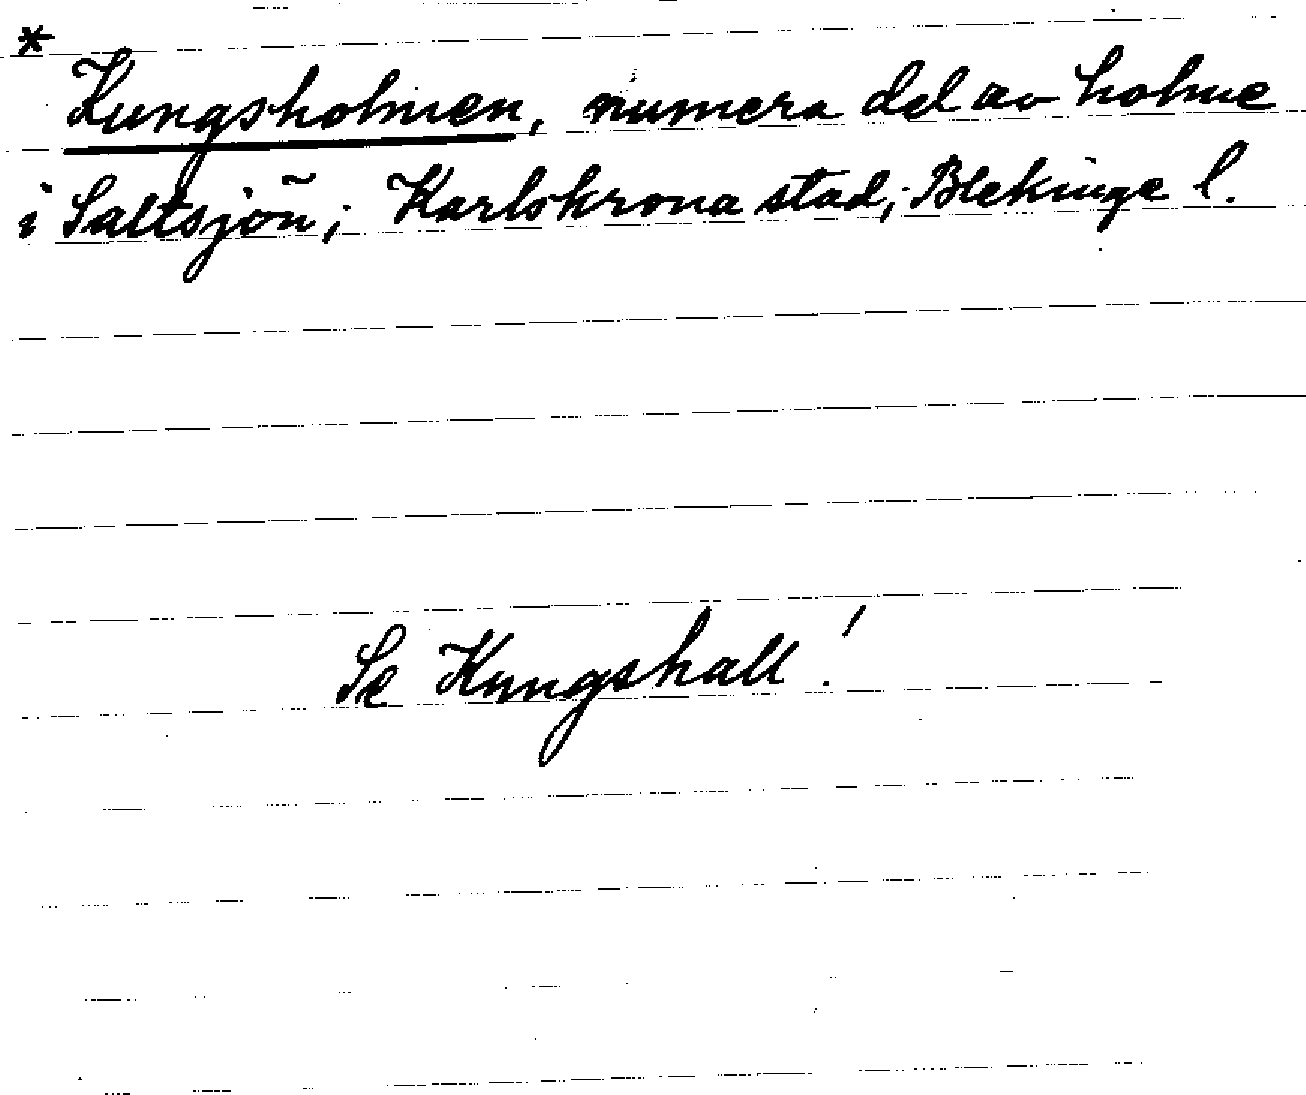 *
Kungsholmen, numera del av holme
i Saltsjön; Karlskrona stad; Blekinge l.
Se Kungshall!